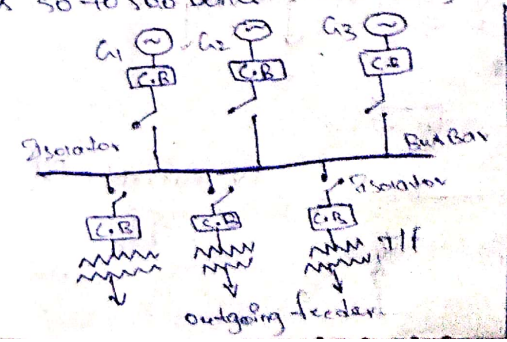 G1 G2 G3
C.B C.B C.B
Isolator
Bus Bar
Isolator
C.B C.B C.B
T/f
outgoing feeder.